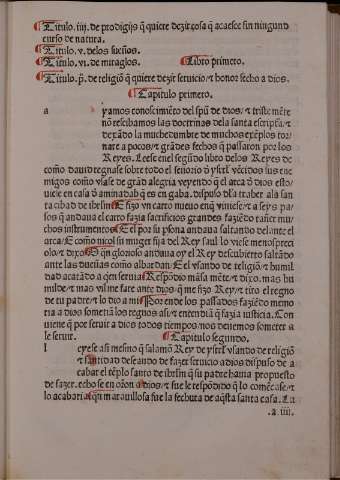 Titulo. iiij. de prodigijs q̃ quiere dezir cosa q̃ acaesce sin ningund
curso de natura.
Titulo. v. de los sueños.
Titulo. vi. de miraglos. Libro primero.
Titulo. p̃. de religiõ q̃ quiere dezir seruicio / honor fecho a dios.
Capitulo primero.
a yamos conoscimiẽto del spũ de dios / τ triste mẽte
nõ rescibamos las doctrinas de la santa escriptã / τ
dexãdo la muchedumbre de muchos exẽplos tor-
nate a pocos / τ grãdes fechos q̃ passaron por los
Reyes. Leese en el segũdo libro delos Reyes de
como dauid regnase sobre todo el señorio
migos como vsase de grãd alegria veyendo q̃ el arca
uiese en casa
ta cibdad de ihrlm E fizo vn carro nueuo
sos q̃ andaua el carro fazia sacrificios grandes faziẽdo tañer mu-
chos instrumentos E el por su psona andaua saltando delante el
arca E como nicol su muger fija del Rey saul lo viese menospreci
olo / τ dixo O q̃n glorioso andaua oy el Rey descubierto saltãdo
ante las dueñas como albardan E el vsando de religiõ / τ humil
dad acatãdo a q̃en seruia Respõdio mãsa mẽte / τ dixo. mas hu
milde / τ mas vil me fare ante dios q̃ me fizo Rey / τ tiro el regno
de tu padre / τ lo dio a mi Por ende los passados faziẽdo memo
ria a dios sometiã los regnos a si / τ entendiã q̃ fazia iusticia. Con
uiene q̃ por seruir a dios todos tiempos nos deuemos someter a
le seruir. Capitulo segundo.
l eyese asi mesmo q̃ salamõ Rey de ysrl vsando de religiõ
τ santidad deseando de fazer seruicio a dios dispuso de a
cabar el tẽplo santo de ihrlm q̃ su padre hauia propuesto
de fazer. echose en oraõn a dios / τ fue le respõdido q̃ lo comẽcase / τ
lo acabaria q̃n marauillosa fue la fechura de aq̃sta santa casa. La
a. iiij.